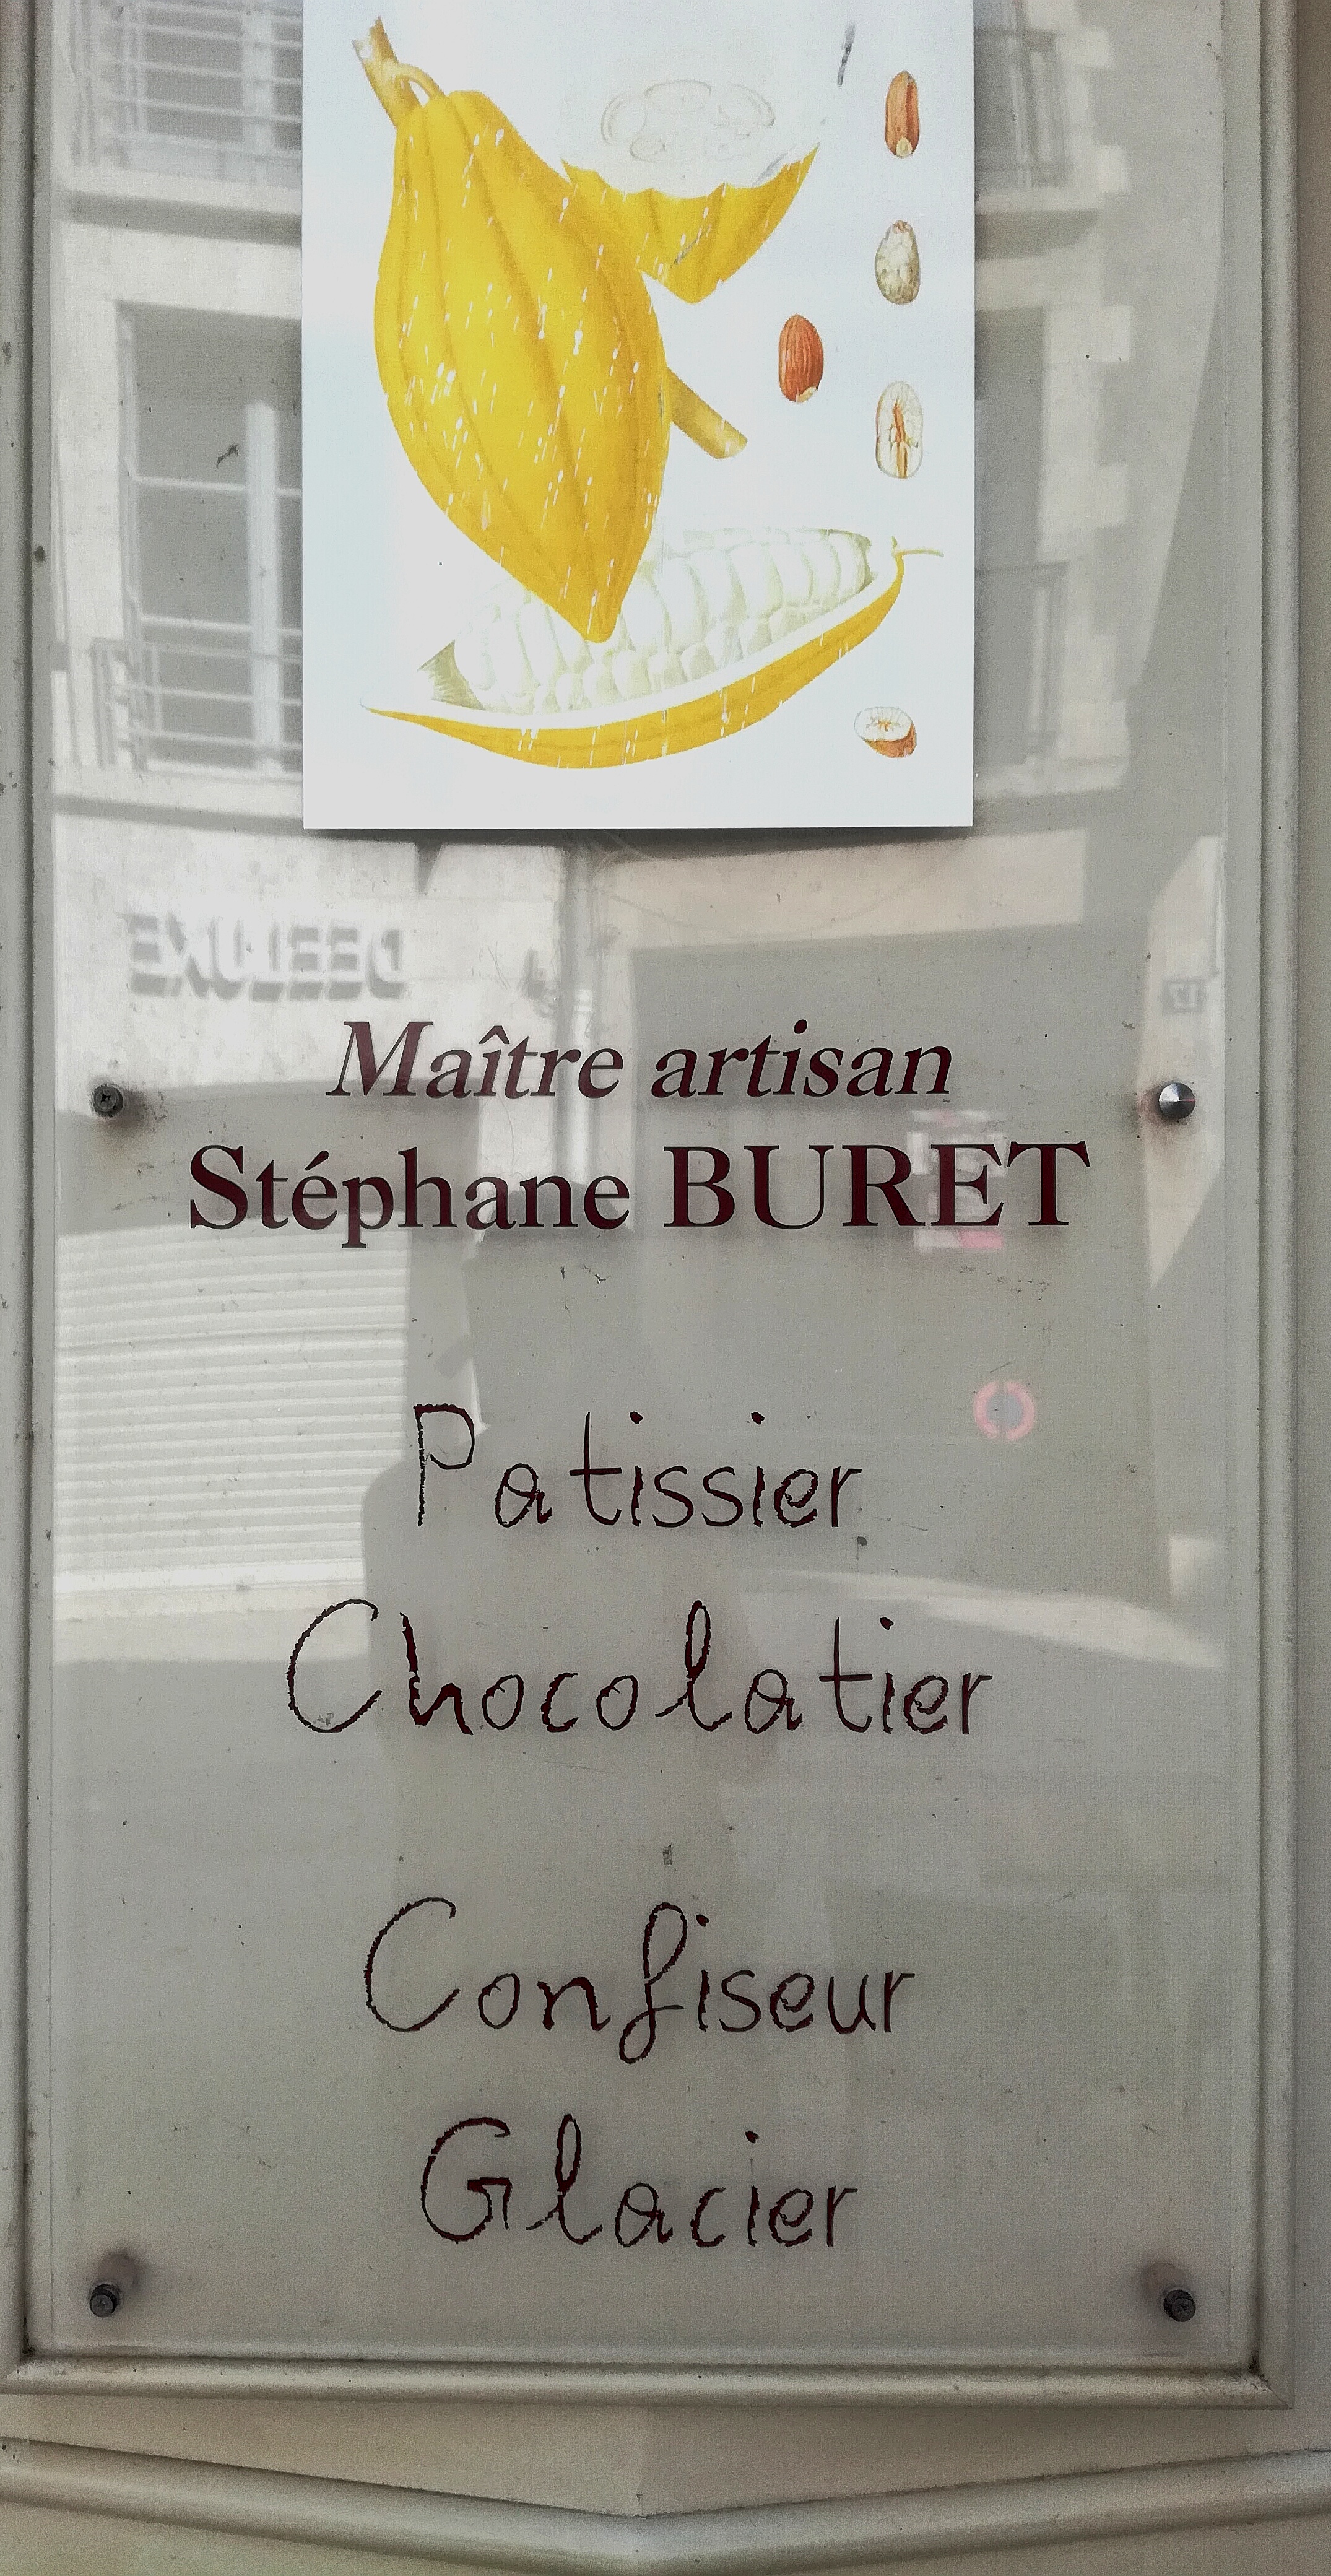 DEELUXE
Maître artisan
Stéphane BURET
Patissier
Chocolatier
Confiseur
Glacier